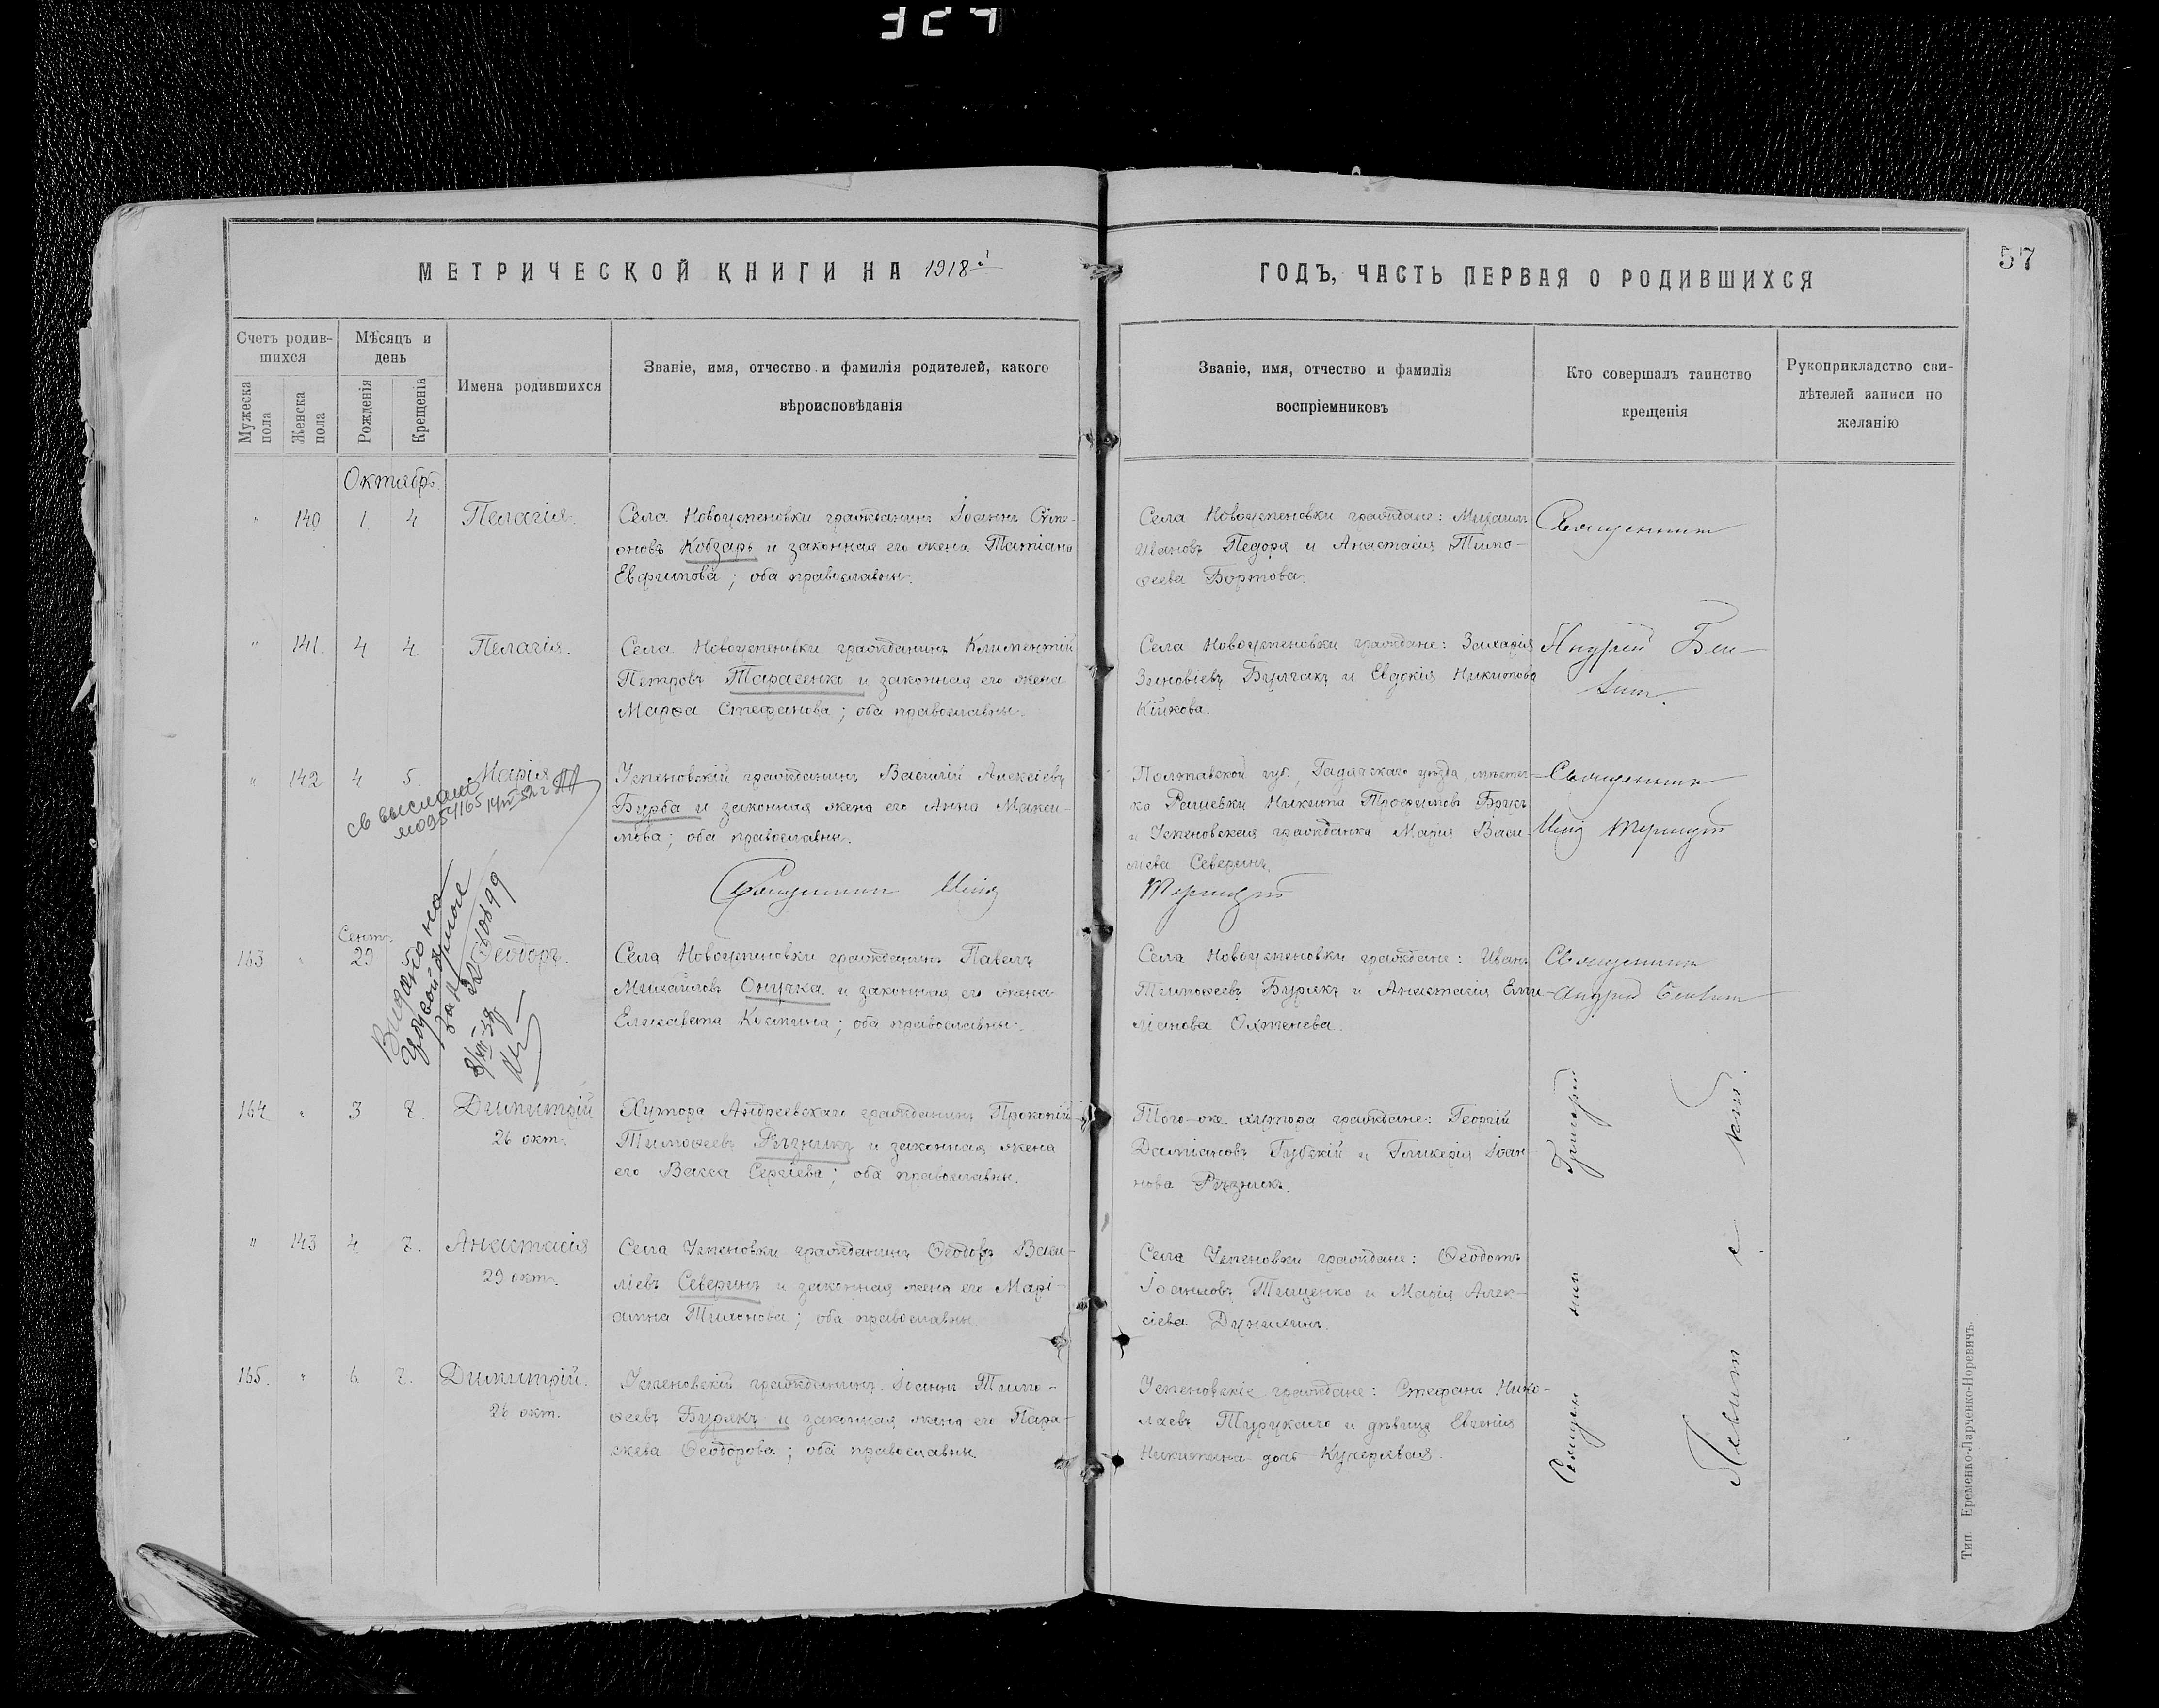 57
МЕТРИЧЕСКОЙ КНИГИ НА 1918й
ГОДЪ, ЧАСТЬ ПЕРВАЯ О РОДИВШИХСЯ
Счетъ родив-
шихся
Мужеска
пола
Женска
пола
Мѣсяцъ и
день
Рожденія
Крещенія
Имена родившихся
Званіе, имя, отчество и фамилія родителей, какого
вѣроисповѣданія
Званіе, имя, отчество и фамилія
воспріемниковъ
Кто совершалъ таинство
крещенія
Рукоприкладство сви-
дѣтелей записи по
желанію
Октябрь
" 140 1 4 Пелагія.
Села Новоуспеновки гражданинъ Іоаннъ
оновъ Кобзарь и законная его жена Татіана
Евфимова; оба православны.
Села Новоуспеновки граждане: Михаилъ
Ивановъ Педоря и Анастасія Тимо-
ѳеева Бортова.
Священникъ
" 141 4 4 Пелагія.
Села Новоуспеновки гражданинъ Климентій
Петровъ Тарасенко и законная его жена
Марѳа Стефанова; оба православны.
Села Новоуспеновки граждане: Захарія
Зиновіевъ Булгакъ и Евдокія
Андрей
" 142 4 5 Марія
Успеновскій гражданинъ Василій Алексіевъ
Бурба и законная жена его Анна Макси-
мова; оба православны.
Полтавской губ., Гадячскаго уѣзда, мѣстеч-
ка Рашевки Никита Трофимовъ
и Успеновская гражданка Марія Васи-
ліева Северинъ.
Священникъ
св выслано
Священникъ
Сент.
163 " 29 Ѳеодоръ.
Села Новоуспеновки гражданинъ Павелъ
Михайловъ Онучка и законная его жена
Елисавета Космина; оба православны.
Села Новоуспеновки граждане: Иванъ
Тимоѳеевъ Бурякъ и Анастасія Еми-
ліанова Охтенева.
Священникъ
Андрей
Видано на
164 " 3 7. Димитрій
26 окт.
Хутора Андреевскаго гражданинъ Прокопій
Тимоѳеевъ Рѣзникъ и законная жена
его Васса Сергіева; оба православны.
Того-же хутора граждане: Георгій
Даміановъ Губскій и Гликерія Іоан-
нова Рѣзникъ.
" 143 4 7. Анастасія
29 окт.
Села Успеновки гражданинъ Ѳеодоръ Васи-
ліевъ Северинъ и законная жена его Марі-
анна Тихонова; оба православны.
Села Успеновки граждане: Ѳеодотъ
Іоанновъ Тищенко и Марія Алек-
сіева
165. " 6 7. Димитрій.
26 окт.
Успеновскій гражданинъ Іоаннъ Тимо-
ѳеевъ Бурякъ и законная жена его Пара-
скева Ѳеодорова; оба православны.
Успеновскіе граждане: Стефанъ Нико-
лаевъ и дѣвица Евгенія
Никитина дочь Кучерявая.
Григорій
Тип Еременко-Ларченко-Норевичъ.